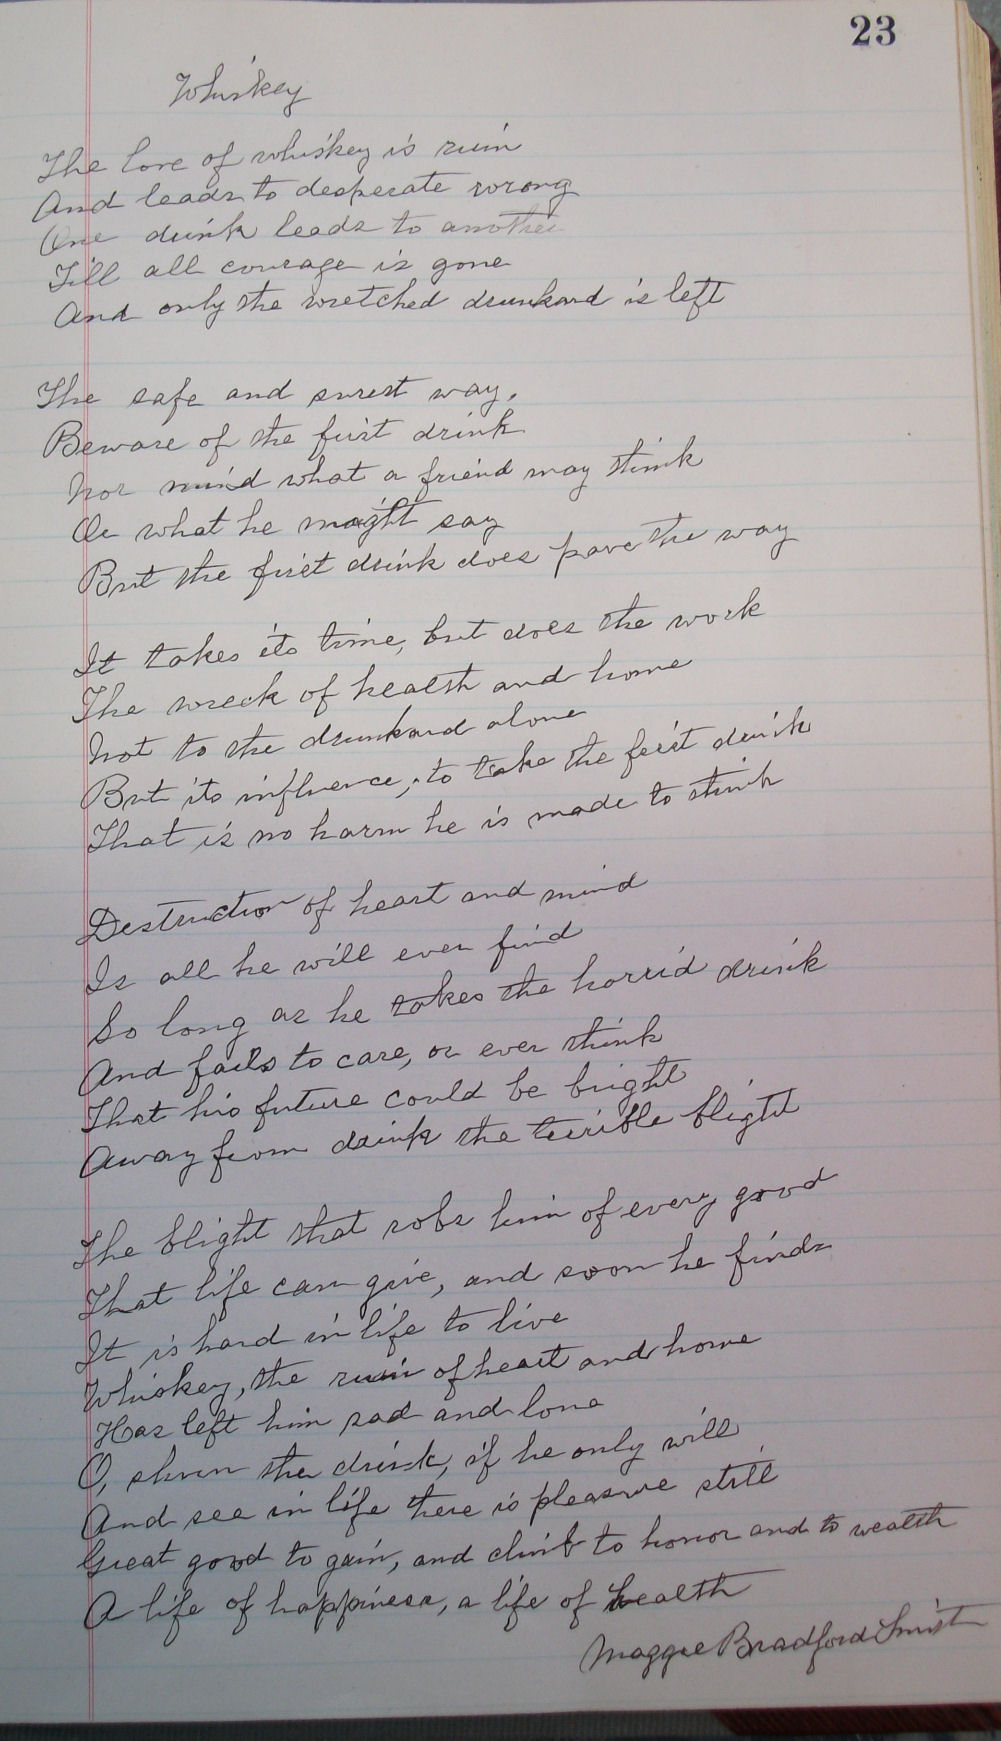 23
Whiskey
The love of whiskey is ruin
And leads to desperate wrong
One drink leads to another
Till all courage is gone
And only the wretched drunkard is left
The safe and surest way,
Beware of the first drink
Nor mind what a friend may think
Or what he might say
But the first drink does pave the way
It takes its time, but does the work
The wreck of health and home
Not to the drunkard alone
But its influence, to take the first drink
That is no harm he is made to think
Destruction of heart and mind
Is all he will ever find
So long as he takes the horrid drink
And fails to care, or ever think
That his future could be bright
Away from drink the terrible blight
The blight that robs him of every good
That life can give, and soon he finds
It is hard in life to live
Whiskey, the ruin of heart and home
Has left him sad and lone
O, shun the drink, if he only will
And see in life there is pleasure still
Great good to gain, and climb to honor and to wealth
A life of happiness, a life of health
Maggie Bradford Smith